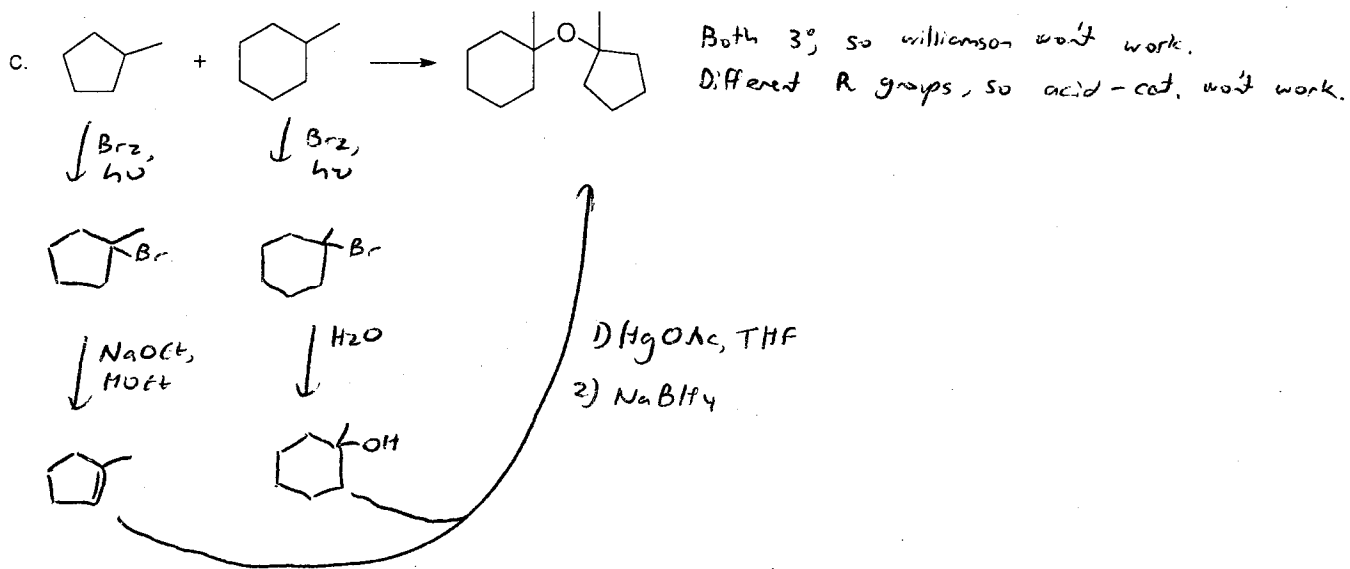 C.
+
O
Both 3°, so williamson won't work.
Different R groups, so acid-cat. won't work.
Br2,
hν
Br2,
hν
Br
Br
NaOEt,
HOEt
H2O
1) HgOAc, THF
2) NaBH4
OH